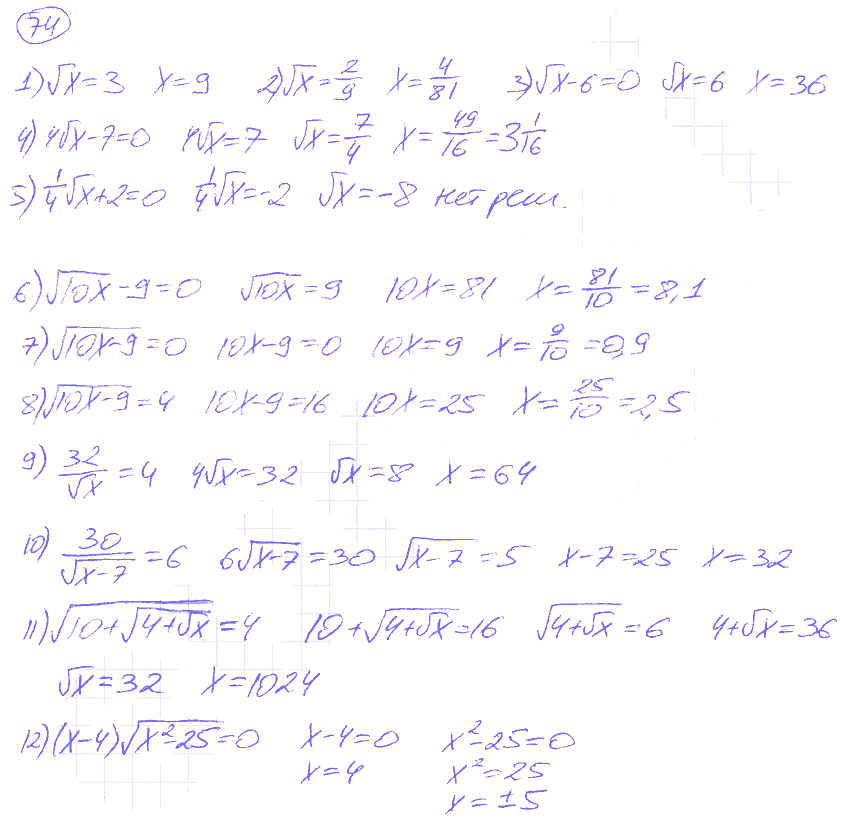 74
1) √x=3 x=9 2) √x=2/9 x=4/81 3) √x-6=0 √x=6 x=36
4) 4√x-7=0 4√x=7 √x=7/4 x=49/16=3 1/16
5) 1/4√x+2=0 1/4√x=-2 √x=-8 нет реш.
6) √(10x)-9=0 √(10x)=9 10x=81 x=81/10=8,1
7) √(10x-9)=0 10x-9=0 10x=9 x=9/10=0,9
8) √(10x-9)=4 10x-9=16 10x=25 x=25/10=2,5
9) 32/√x=4 4√x=32 √x=8 x=64
10) 30/√(x-7)=6 6√(x-7)=30 √(x-7)=5 x-7=25 x=32
11) √(10+√(4+√x))=4 10+√(4+√x)=16 √(4+√x)=6 4+√x=36
√x=32 x=1024
12) (x-4)√(x²-25)=0 x-4=0 x²-25=0
x=4 x²=25
x=±5